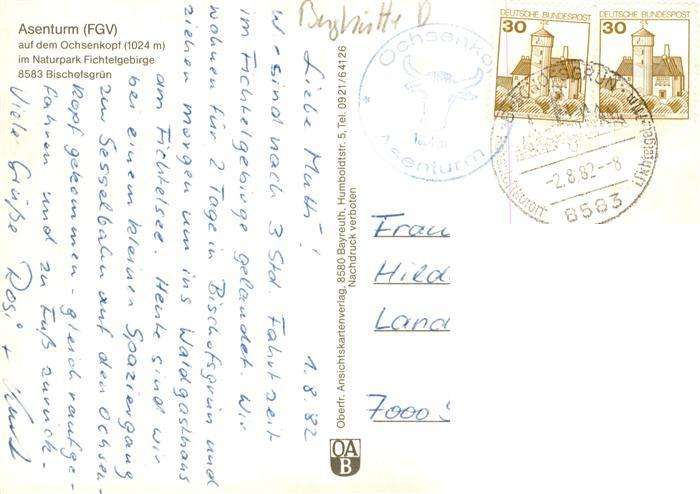 Asenturm (FGV)
auf dem Ochsenkopf (1024 m)
im Naturpark Fichtelgebirge
8583 Bischofsgrün
1.8.82
Liebe Mutti!
Wir sind nach 3 Std. Fahrtzeit
im Fichtelgebirge gelandet. Wir
wohnen für 2 Tage in Bischofsgrün und
ziehen morgen um ins Waldgasthaus
am Fichtelsee. Heute sind wir
bei einem kleinen Spaziergang
zur Sesselbahn auf den Ochsen-
kopf gekommen - gleich raufge-
fahren und zu Fuß zurück.
Viele Grüße Rosi + Kurt
Oberfr. Ansichtskartenverlag, 8580 Bayreuth, Humboldtstr. 5, Tel. 0921/64126
Nachdruck verboten
OA
B
Ochsenkopf
Asenturm
DEUTSCHE BUNDESPOST
30
DEUTSCHE BUNDESPOST
30
BISCHOFSGRÜN
-2.8.82-8
8583
Frau
Hild
Land
7000 S